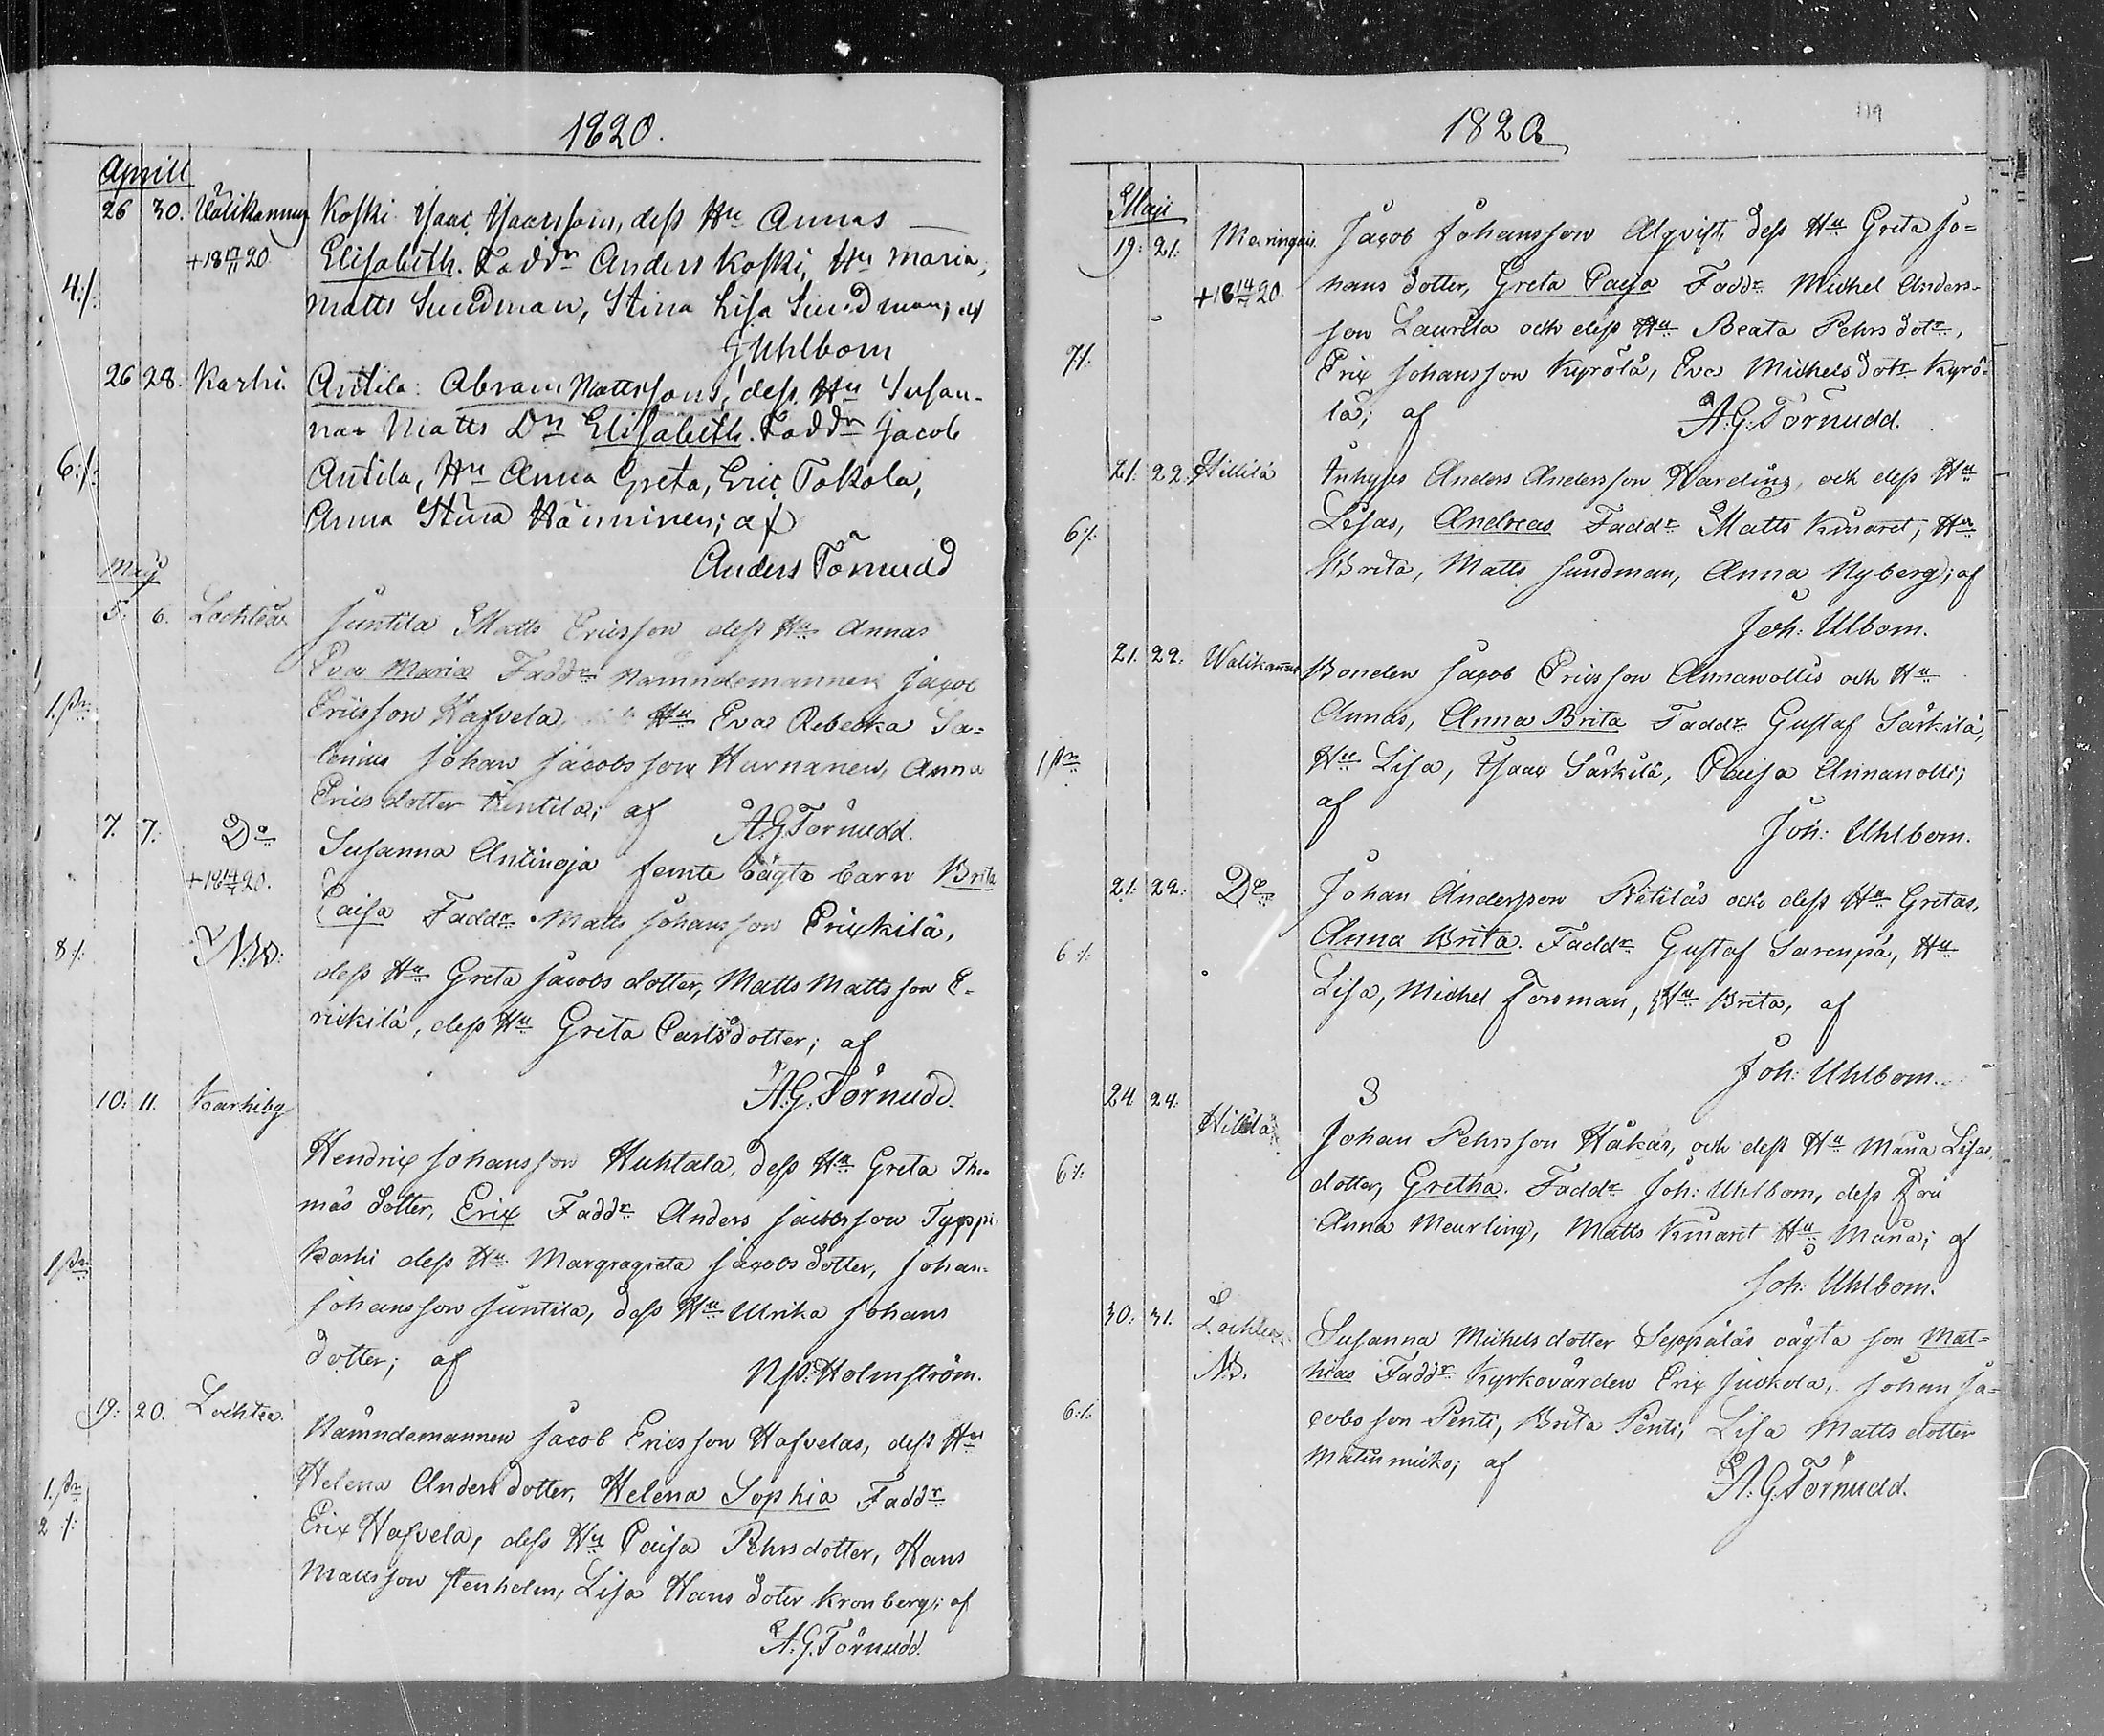 1820.
Aprill
26 30. Välikannus Koski Isaac Isacssons, dess Hu Annas
+18 17/11 20 Elisabeth. Faddr Anders Koski, Hu Maria,
4:/: Matts Sundman, Stina Lisa Sundman; af
J Uhlbom
26 28. Karhi. Antila: Abram Mattssons, dess Hu Susan-
nas Matts Dr Elisabeth. Faddr Jacob
6:/: Antila, Hu Anna Greta, Eric Tokola,
Anna Stina Hänninen; af
Anders Törnudd
May
5. 6. Lochteå Juntila Matts Ericsson dess Hu Annas
Eva Maria Faddr Nämndemannen Jacob
1.pr Ericsson Hafvela, Hu Eva Rebecka Sa-
lenius Johan Jacobsson Hurnanen, Anna
Ericsdotter Juntila; af A.G. Törnudd.
7. 7. Do Susanna Antinoja femte oägta barn Brita
+18 14/7 20. Caisa Faddr Matts Johansson Erickilä,
8/: NB: dess Hu Greta Jacobs dotter, Matts Mattsson E-
rickilä, dess Hu Greta Carlsdotter; af
A.G. Törnudd.
10: 11. Karhiby
Hendric Johansson Huhtala, dess Hu Greta Tho-
mas dotter, Eric Faddr Anders Jacobsson Typpi
1 pr Karhi dess Hu Margragreta Jacobs dotter, Johan
Johansson Juntila, dess Hu Ulrika Johans
dotter; af Nps: Holmström.
19: 20. Lochteå Nämndemannen Jacob Ericsson Hafvelas, dess Hu
1.pr Helena Anders dotter, Helena Sophia Faddr
2 :/: Eric Hafvela, dess Hu Caisa Pehrsdotter, Hans
Mattsson Stenholm, Lisa Hans doter Kronberg; af
A.G. Törnudd.
1820 119
Maji
19: 21: Maringais Jacob Johansson Alqvist, dess Hu Greta Jo-
+18 14/7 20. hans dotter, Greta Caisa Faddr Michel Anders-
son Laurila och dess Hu Beata Pehrs dotr,
7/: Eric Johansson Kyrölä, Eva Michels dotr Kyrö-
lä; af A.G. Törnudd.
21: 22: Hillilä Inhyses Anders Andersson Harding, och dess Hu
6/: Lisas, Andreas Faddr Matts Kinaret, Hu
Brita, Matts Sundman, Anna Nyberg; af
Joh: Ulbom.
21. 22. Walikannus Bonden Jacob Ericsson Annanollis och Hu
Annas, Anna Brita Faddr Gustaf Särkilä,
1 pr Hu Lisa, Isaac Särkilä, Caisa Annanolli;
af
Joh: Uhlbom.
21: 22: Do Johan Andersson Rätiläs och dess Hu Gretas,
6:/: Anna Brita. Faddr Gustaf Sarenpä, Hu
Lisa, Michel Forsman, Hu Brita, af
Joh: Uhlbom.
24 24. Hillilä Johan Pehrsson Håkas, och dess Hu Maria Lisas
6/: dotter, Gretha. Faddr Joh: Uhlbom, dess Fru
Anna Meurling, Matts Kinaret Hu Maria; af
Joh: Uhlbom.
30: 31. Lochteå Susanna Michels dotter Seppäläs oägta son Mat-
N.B. hias Faddr Kyrkovärden Eric Juckola, Johan Ja-
6:/: cobsson Penti, Brita Penti, Lisa Matts dotter
af A.G. Törnudd.